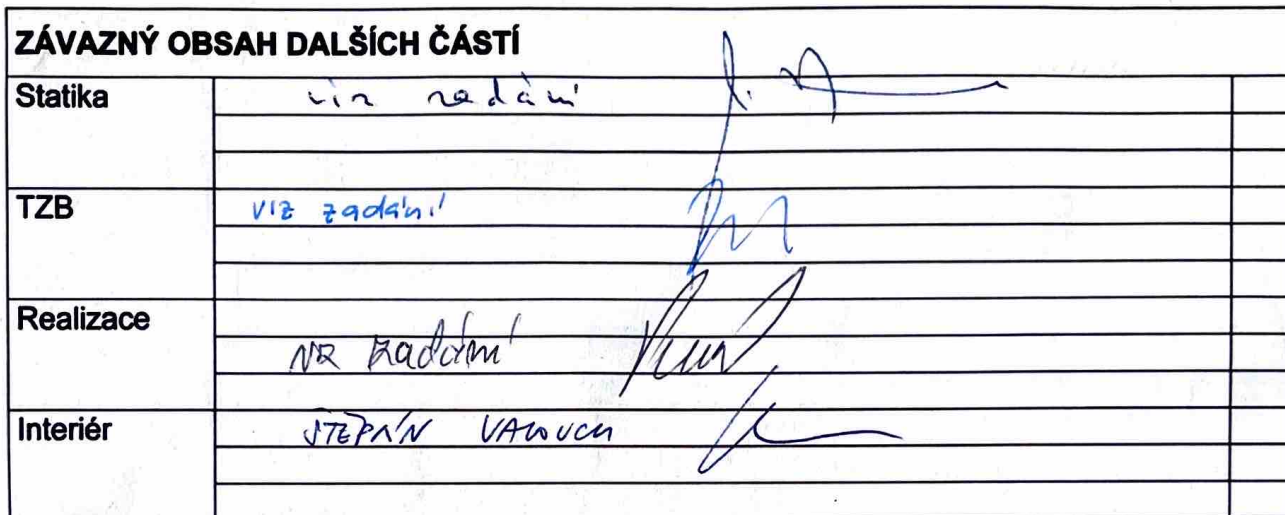 ZÁVAZNÝ OBSAH DALŠÍCH ČÁSTÍ
Statika viz zadání
TZB viz zadání
Realizace viz zadání
Interiér ŠTĚPÁN VALOUCH